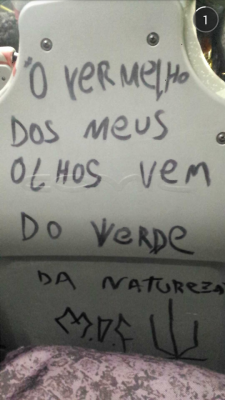 1
"O VERMELHO
DOS MEUS
OLHOS VEM
DO VERDE
DA NATUREZA
M.D.F